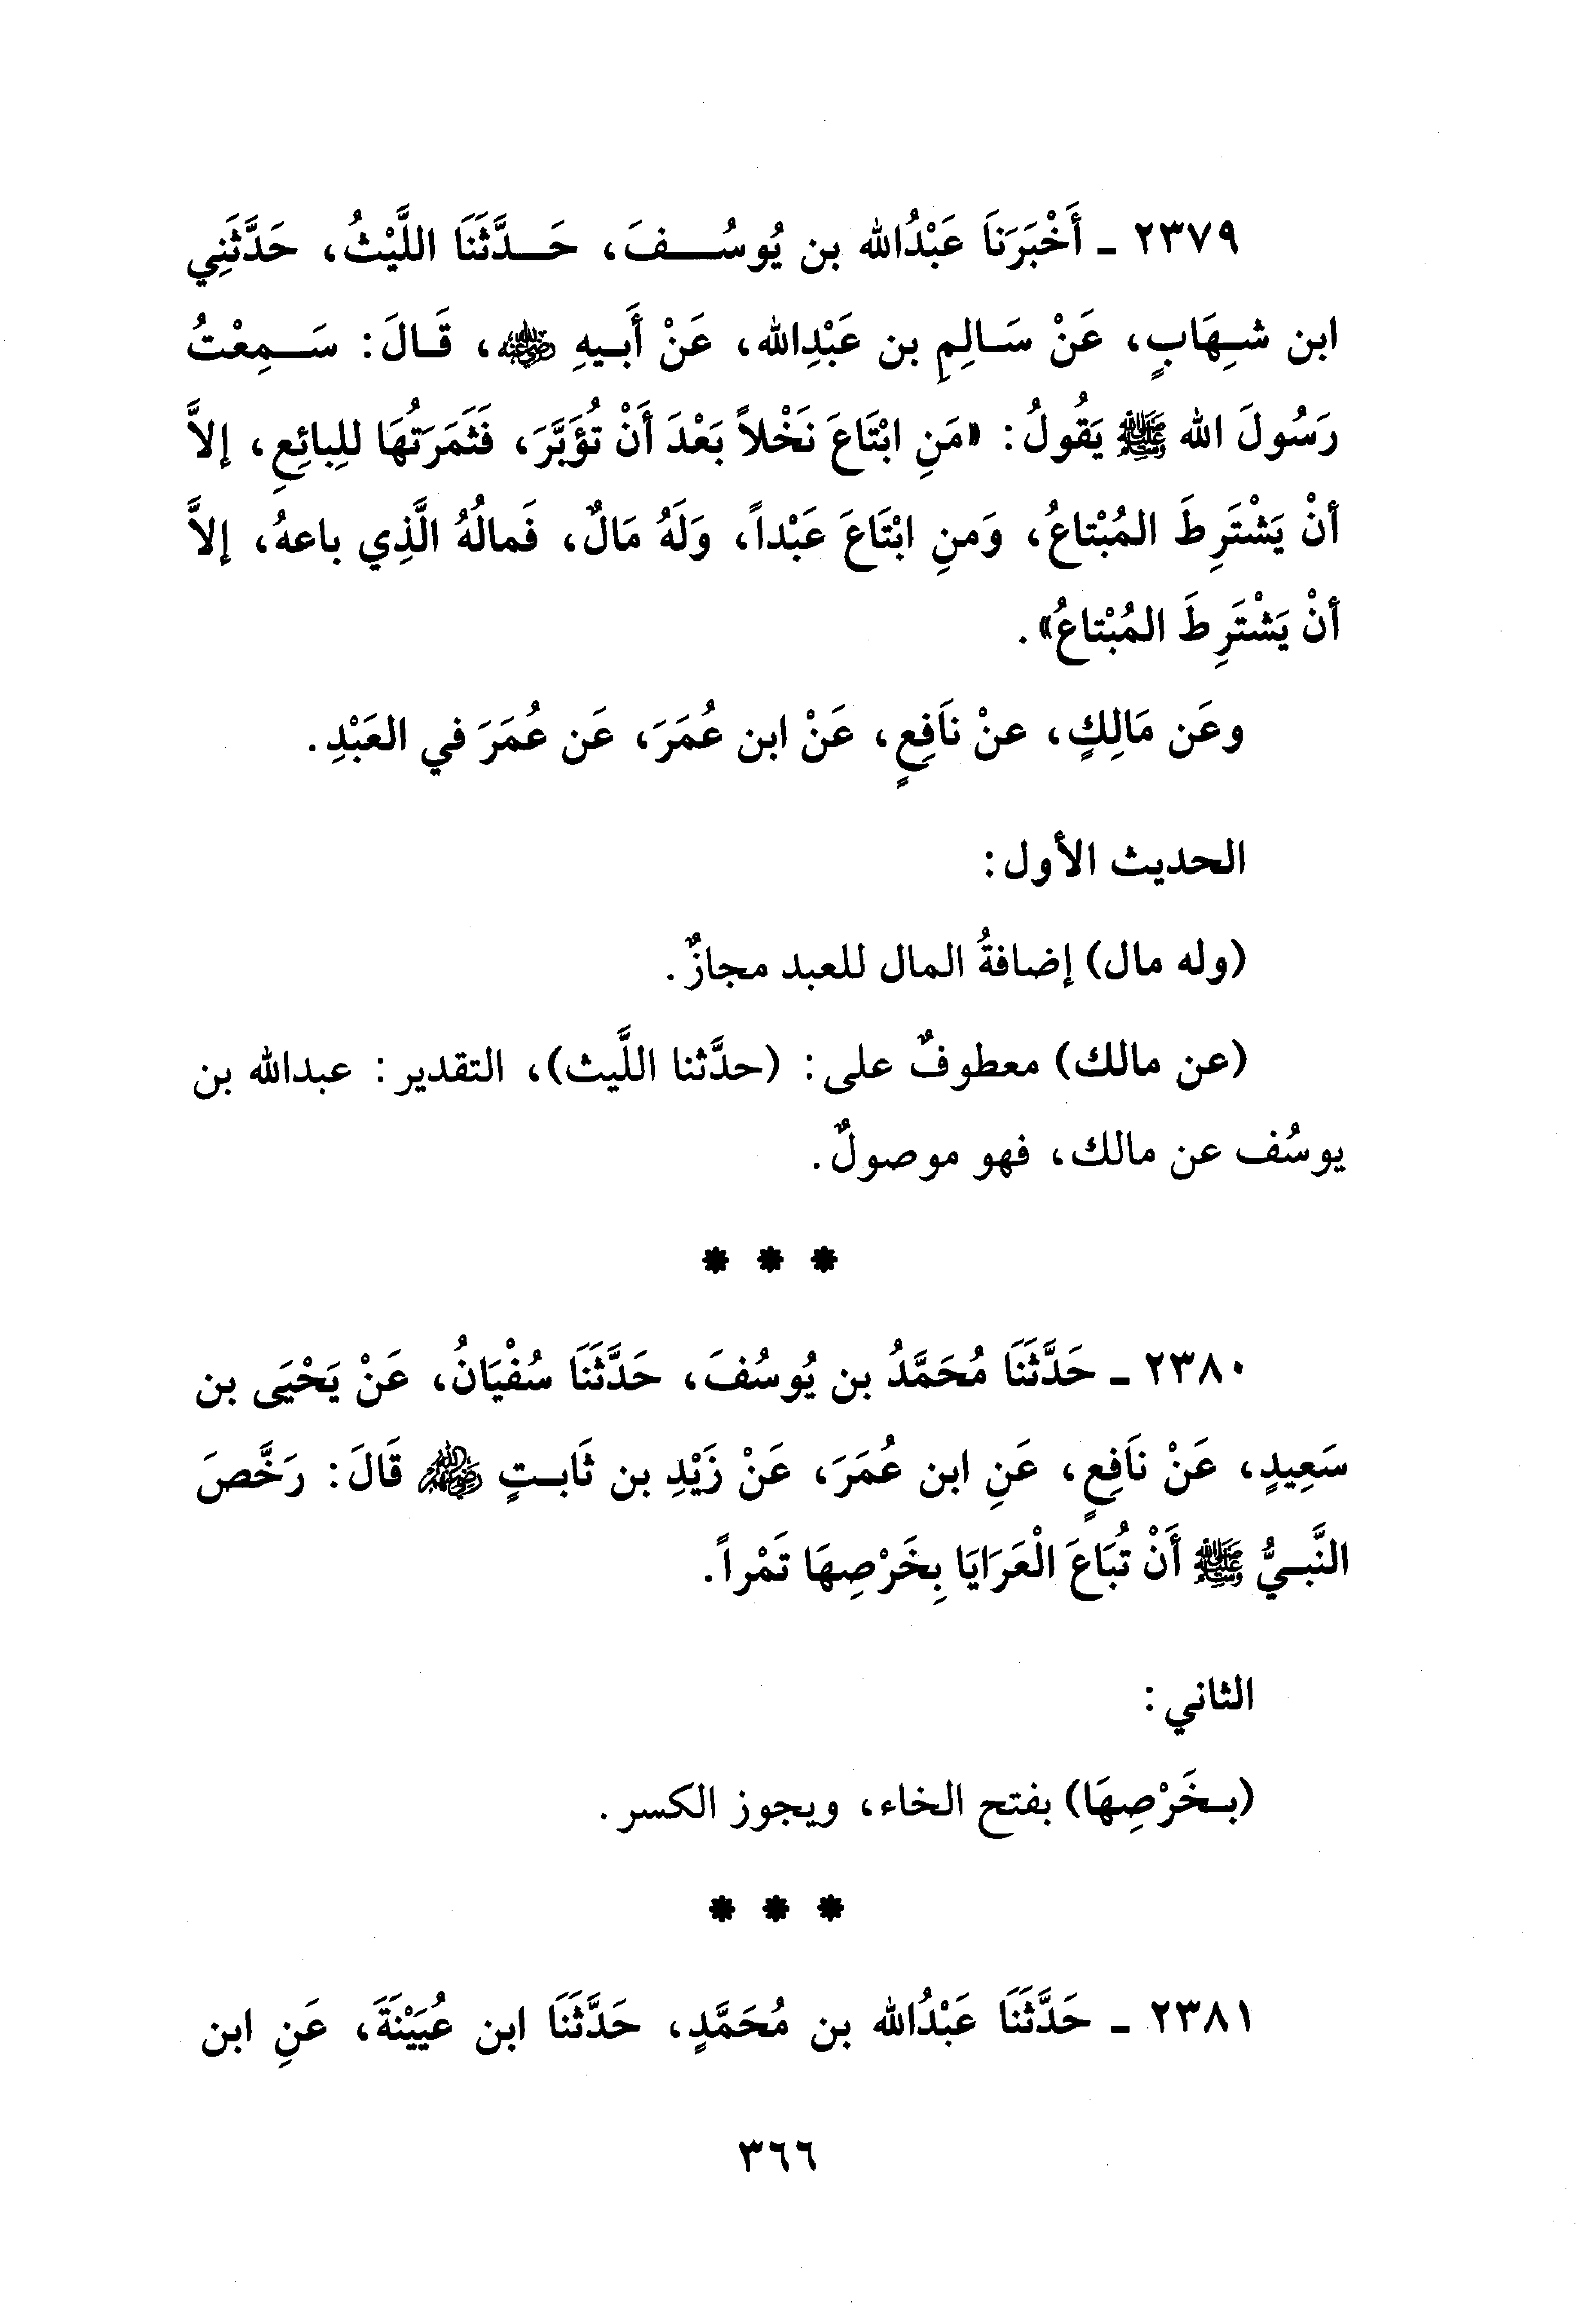 ٢٣٧٩ ـ أَخْبَرَنَا عَبْدُالله بن يُوسُفَ، حَدَّثَنَا اللَّيْثُ، حَدَّثَنِي
ابن شِهَابٍ، عَنْ سَالِمِ بن عَبْدِالله، عَنْ أَبِيهِ رضي الله عنه، قَالَ: سَمِعْتُ
رَسُولَ الله ﷺ يَقُولُ: «مَنِ ابْتَاعَ نَخْلاً بَعْدَ أَنْ تُؤَبَّرَ، فَثَمَرَتُهَا للِبائِعِ، إلاَّ
أنْ يَشْتَرِطَ المُبْتاعُ، وَمنِ ابْتَاعَ عَبْداً، وَلَهُ مَالٌ، فَمالُهُ الَّذِي باعهُ، إلاَّ
أنْ يَشْتَرِطَ المُبْتاعُ».
وعَن مَالِكٍ، عنْ نَافِعٍ، عَنْ ابن عُمَرَ، عَن عُمَرَ في العَبْدِ.
الحديث الأول:
(وله مال) إضافةُ المال للعبد مجازٌ.
(عن مالك) معطوفٌ على: (حدَّثنا اللَّيث)، التقدير: عبدالله بن
يوسُف عن مالك، فهو موصولٌ.
* * *
٢٣٨٠ ـ حَدَّثَنَا مُحَمَّدُ بن يُوسُفَ، حَدَّثَنَا سُفْيَانُ، عَنْ يَحْيَى بن
سَعِيدٍ، عَنْ نَافِعٍ، عَنِ ابن عُمَرَ، عَنْ زَيْدِ بن ثَابتٍ رضي الله عنهم قَالَ: رَخَّصَ
النَّبيُّ ﷺ أَنْ تُبَاعَ الْعَرَايَا بِخَرْصِهَا تَمْراً.
الثاني:
(بخَرْصِهَا) بفتح الخاء، ويجوز الكسر.
* * *
٢٣٨١ ـ حَدَّثَنَا عَبْدُالله بن مُحَمَّدٍ، حَدَّثَنَا ابن عُيَيْنَةَ، عَنِ ابن
٣٦٦